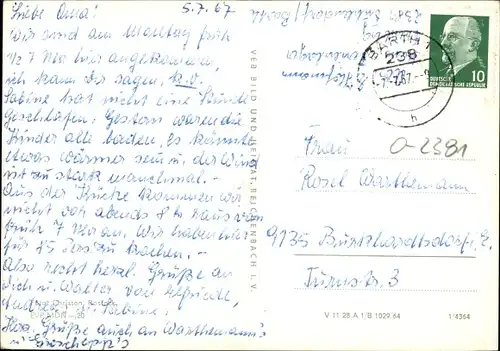 Liebe Oma! 5.7.67
Wir sind am Montag früh
1/2 7 Uhr hier angekommen,
ich kann Dir sagen, k.o.
Sabine hat nicht eine Stunde
geschlafen. Gestern waren die
Kinder alle baden. Es könnte
etwas wärmer sein u. der Wind
ist zu stark manchmal. -
Aus der Küche kommen wir
nicht vor abends 8 h raus von
früh 7 Uhr an. Wir haben hier
für 85 Pers. zu kochen. -
Also recht herzl. Grüße an
Dich u. Walter von
Andrea u. Sabine.
Hrz. Grüße auch an Warthemann's
u.
VEB BILD UND HEIMAT, REICHENBACH I. V.
BARTH 1
238
h
DEUTSCHE
DEMOKRATISCHE REPUBLIK
10
0-2381
Frau
Rosel Warthemann
9135 Burkhardtsdorf, E.
Turnstr. 3
V 11 28 A 1/B 1029 64
1/4364